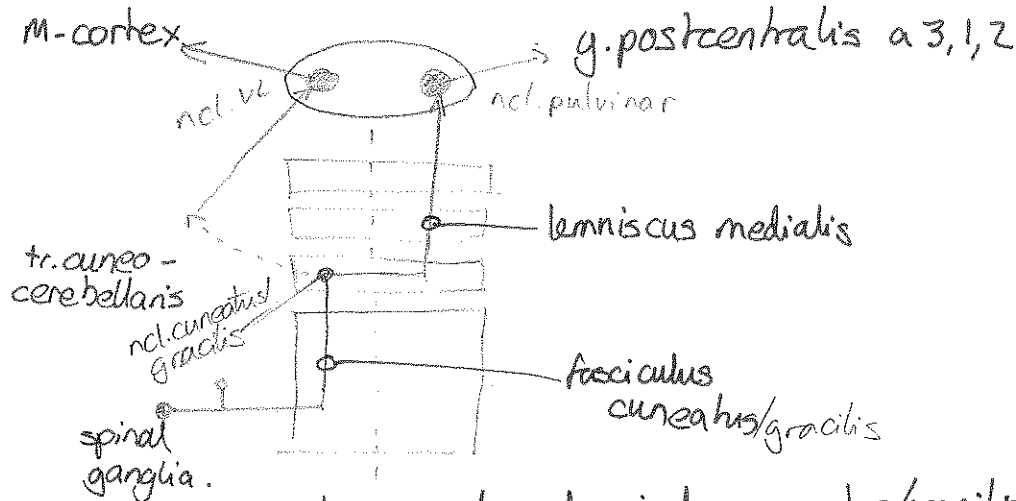 M-cortex
g.postcentralis a 3,1,2
ncl. VL
ncl. pulvinar
lemniscus medialis
tr. cuneo-
cerebellaris
ncl. cuneatus/
gracilis
fasciculus
cuneatus/gracilis
spinal
ganglia.